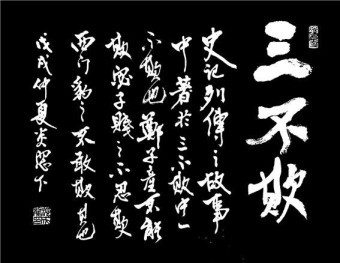 三不欺
史記列傳之故事
中著於三不欺中」
不欺也鄭子產不能
欺宓子賤之不忍欺
西门豹之不敢欺其也
戊戌仲夏炎